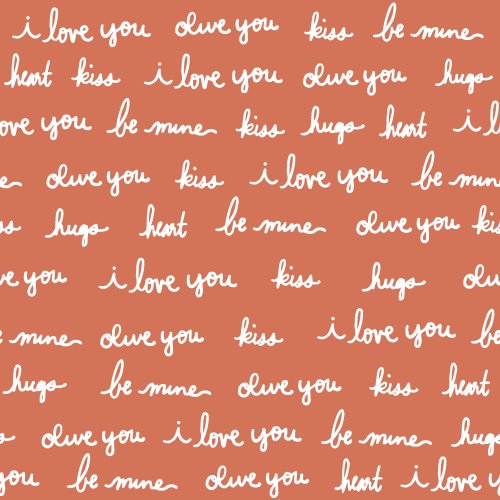 i love you olive you kiss be mine
heart kiss i love you olive you hugs
ove you be mine kiss hugs heart i l
e olive you kiss i love you be min
ss hugs heart be mine olive you kis
ve you i love you kiss hugs oliv
mine olive you kiss i love you be
hugs be mine olive you kiss heart
s olive you i love you be mine hugs
you be mine olive you heart i love y